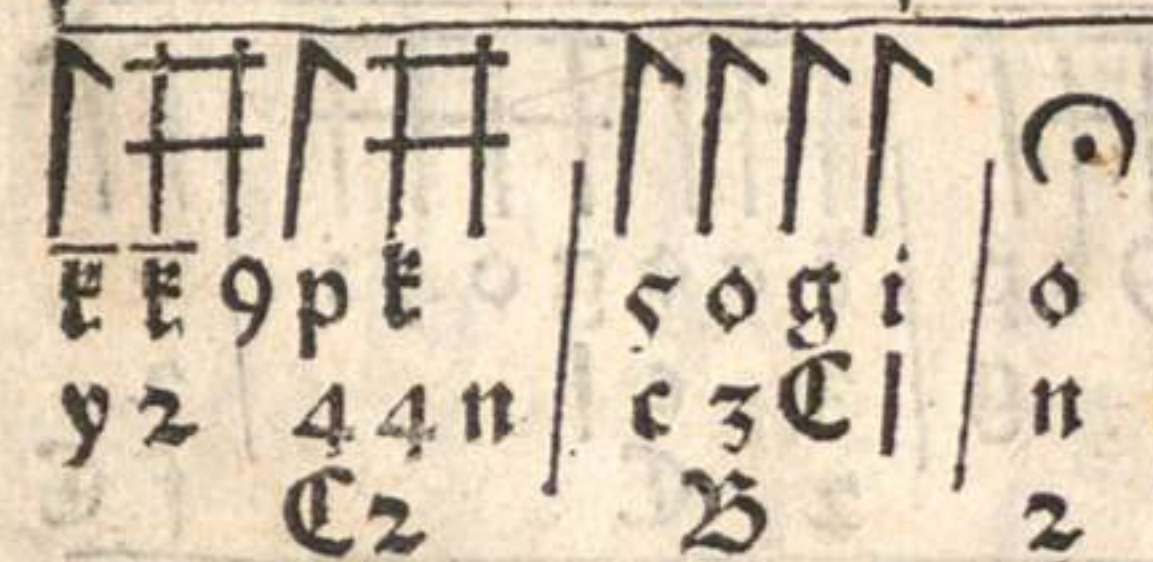 k̄ k̄ 9 p k | 5 o g i | o
y 2 4 4 n | c 3 C | n
C 2 | B | 2